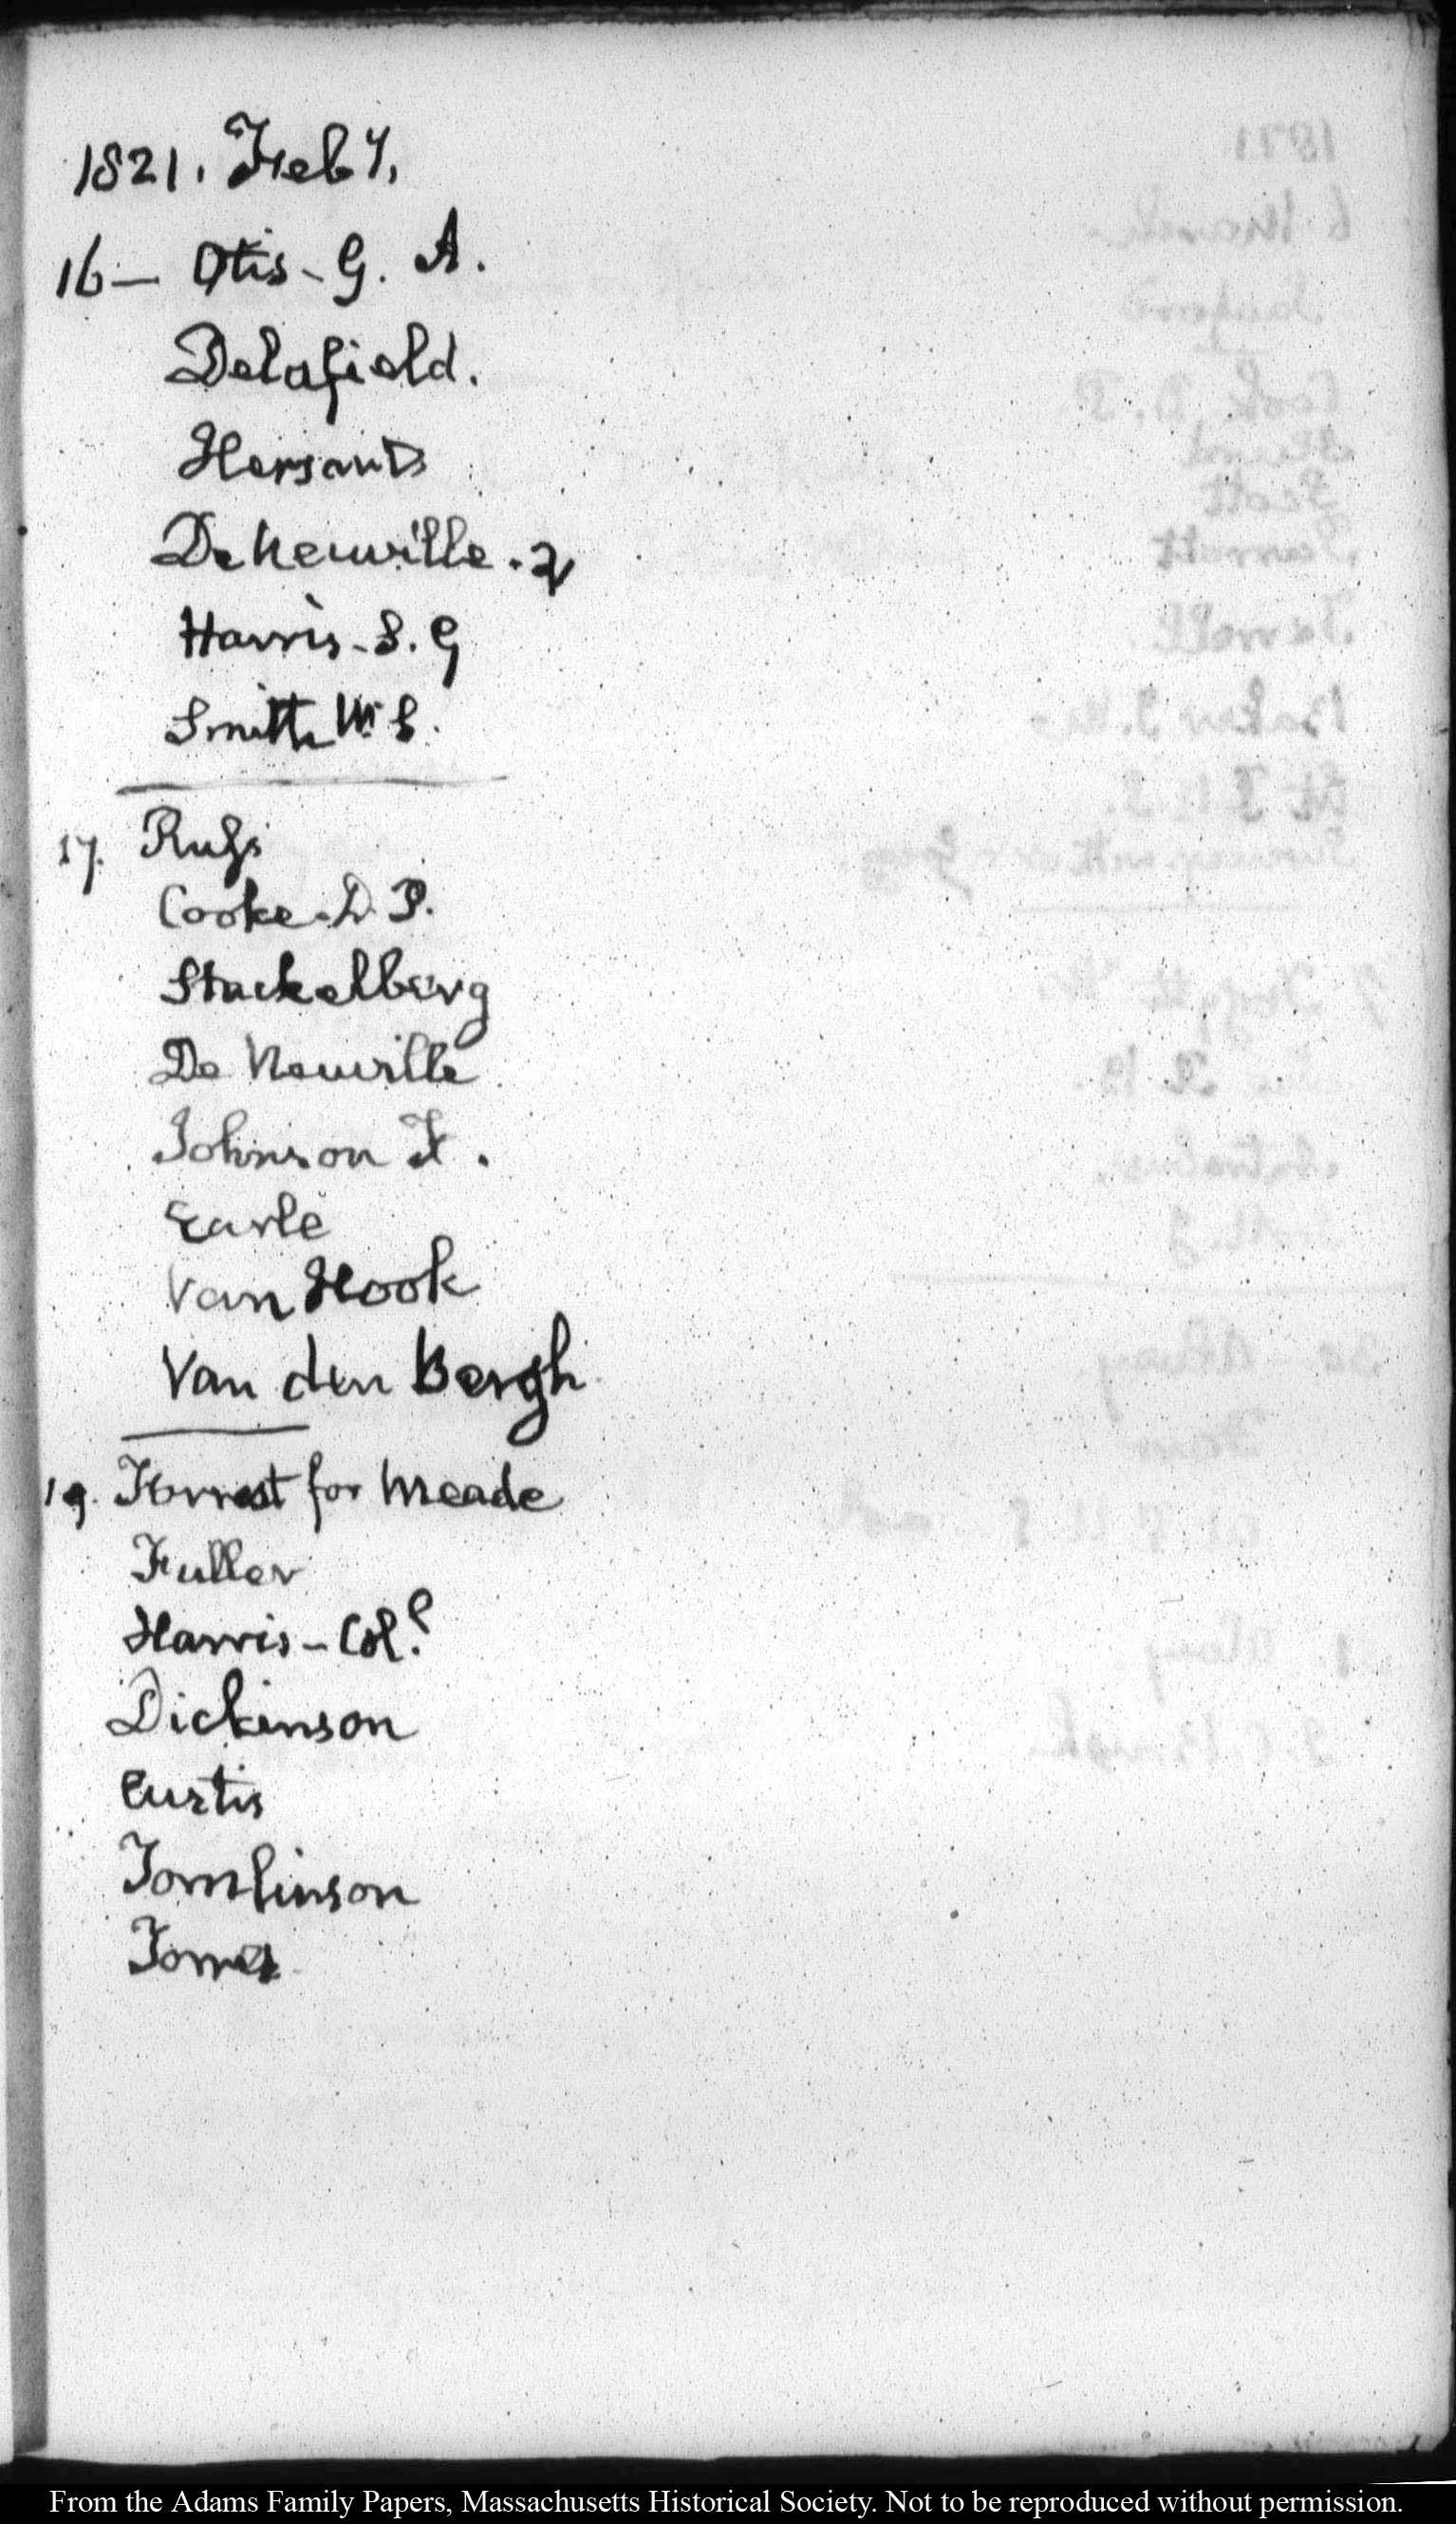 1821. Feby.
16 — Otis - G. A.
Delafield.
Hersant
De Neuville . 2
Harris - S. G
Smith W. S.
17. Rufs
Cooke - D. P.
Stackelberg
De Neuville
Johnson F.
Earle
Van Hook
Van den Bergh
19. Forrest for Meade
Fuller
Harris - Col.
Dickinson
Curtis
Tomlinson
From the Adams Family Papers, Massachusetts Historical Society. Not to be reproduced without permission.